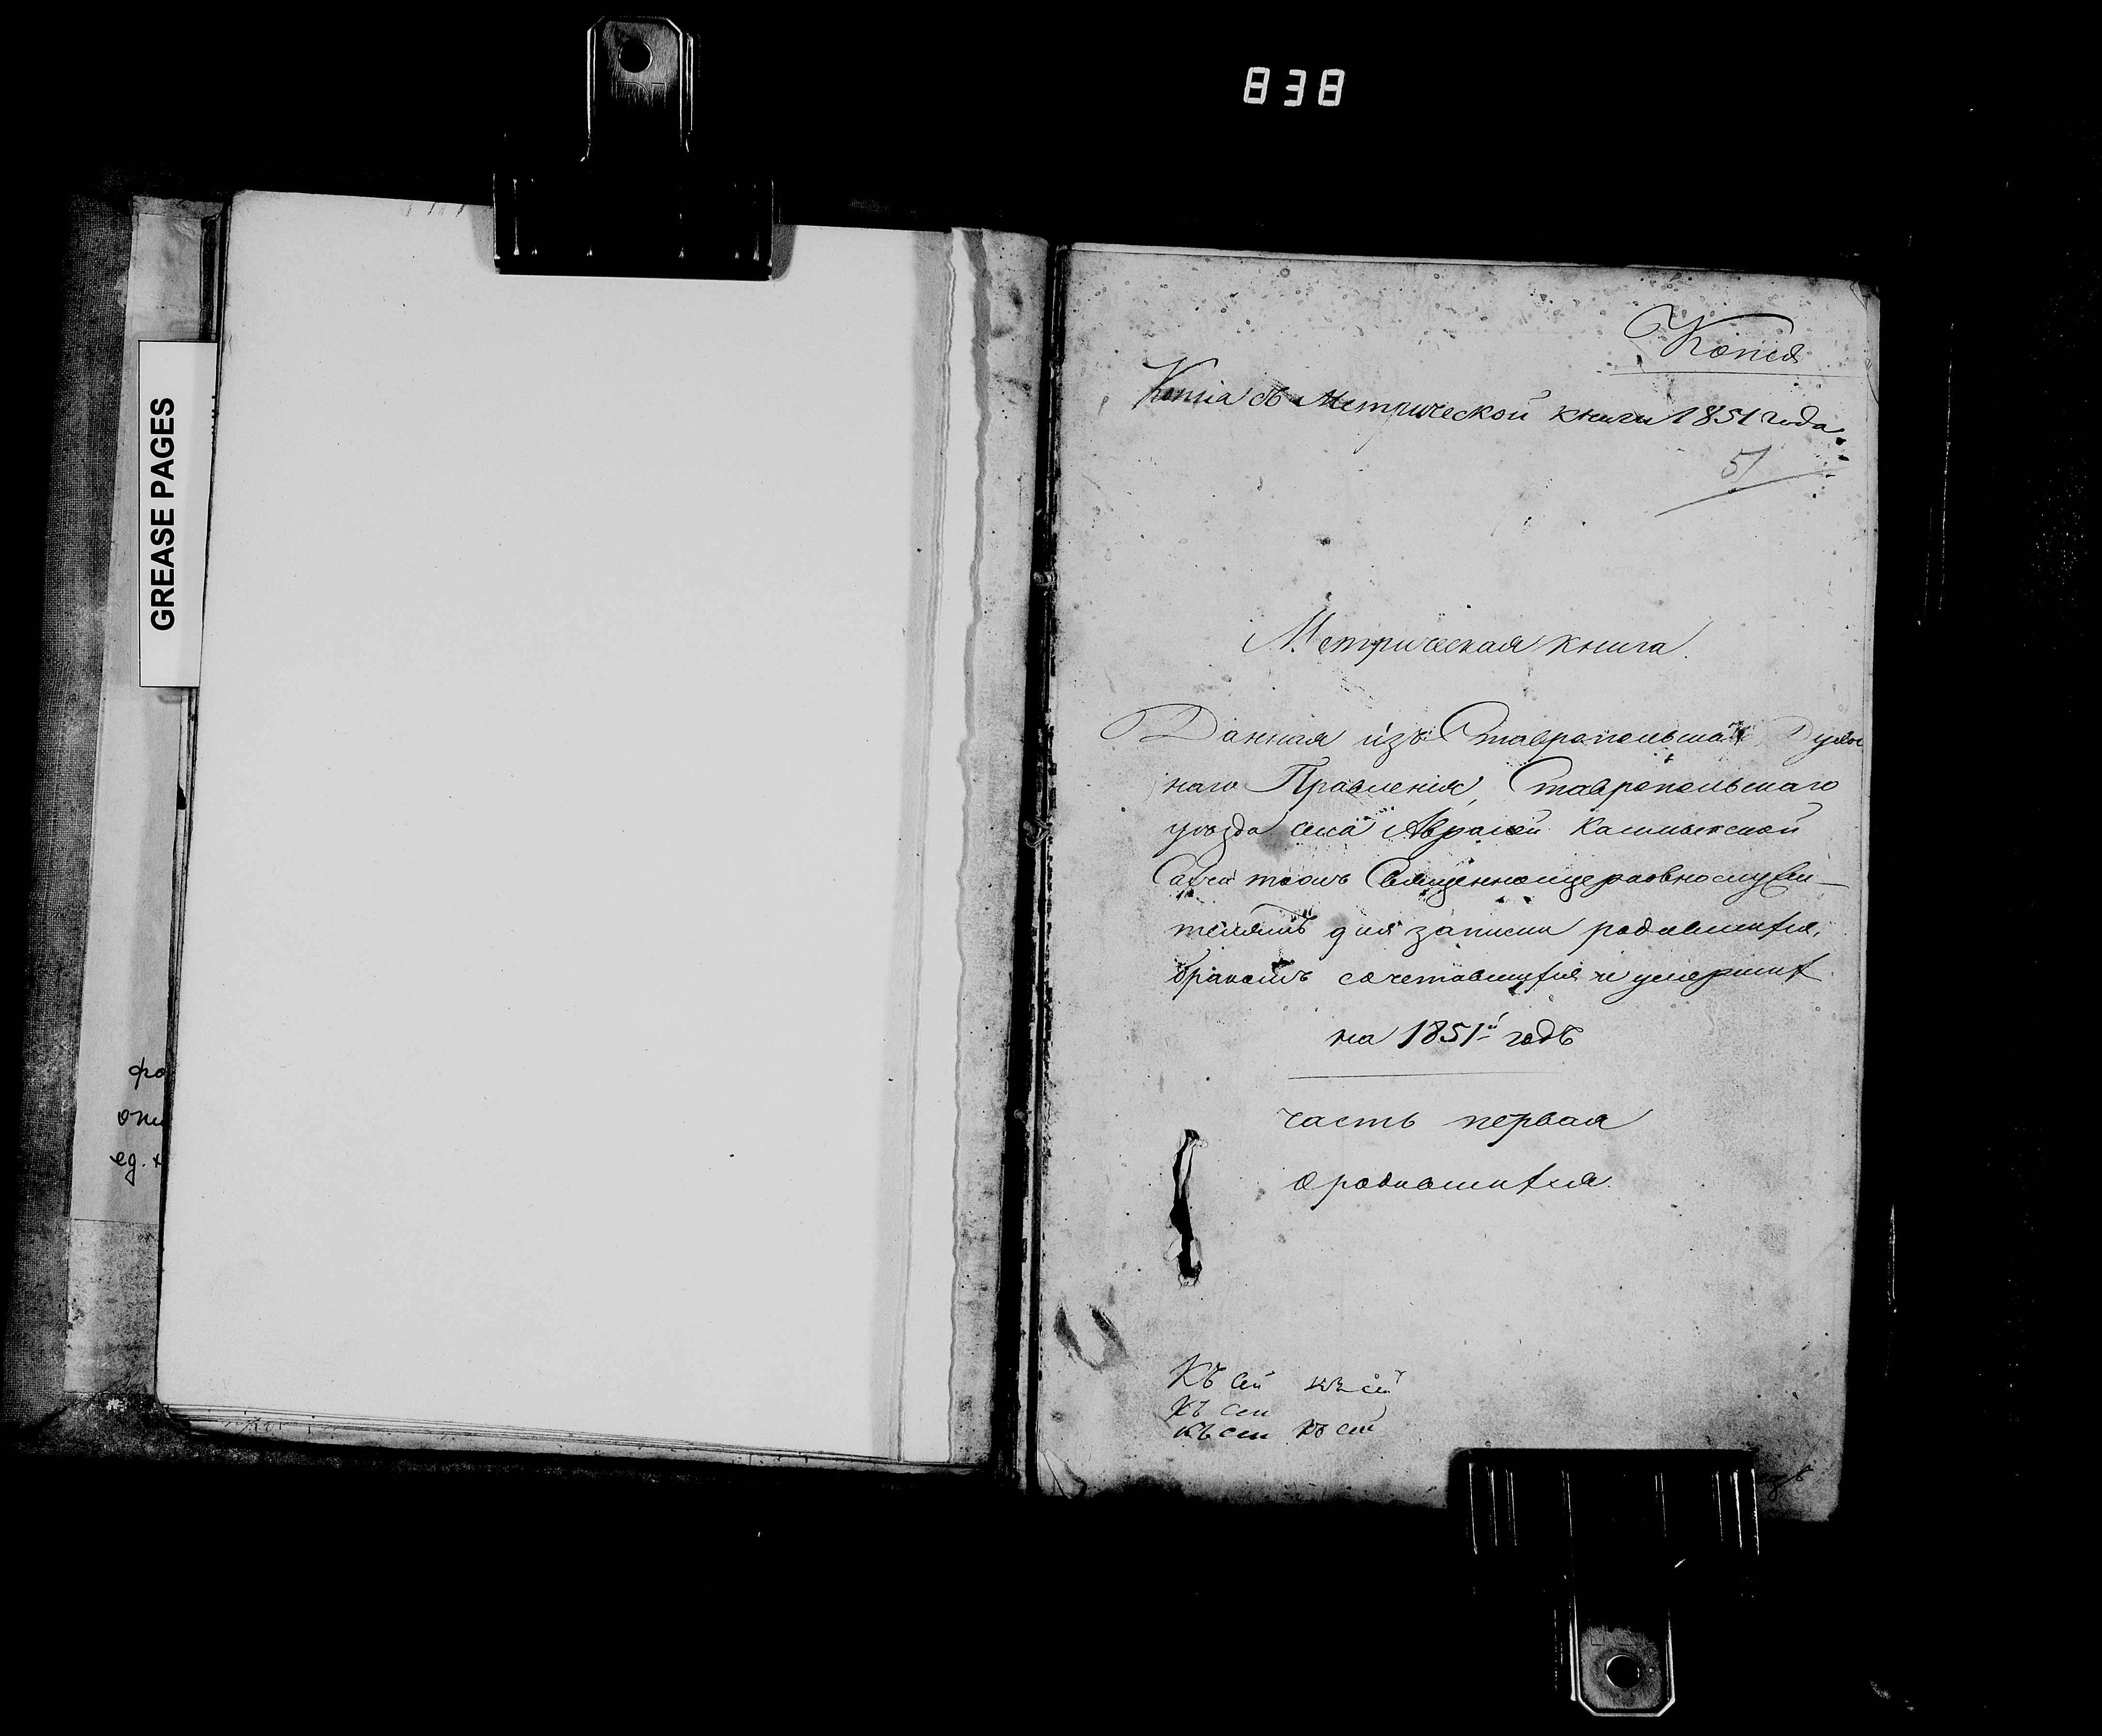 838
GREASE PAGES
фо
опи
ед. х
Копия
Копiа съ Метрической книги 1851 года.
51
Метрическая книга.
Данная изъ Ставропольскаго Духов
наго Правленiя, Ставропольскаго
уѣзда села Калмыцкой
Священноцерковнослужи-
телямъ для записки родившихся,
бракомъ сочетавшихся и умершихъ
на 1851й годъ
часть первая
о родившихся.
Къ сей къ сей
Къ сей
Къ сей къ сей